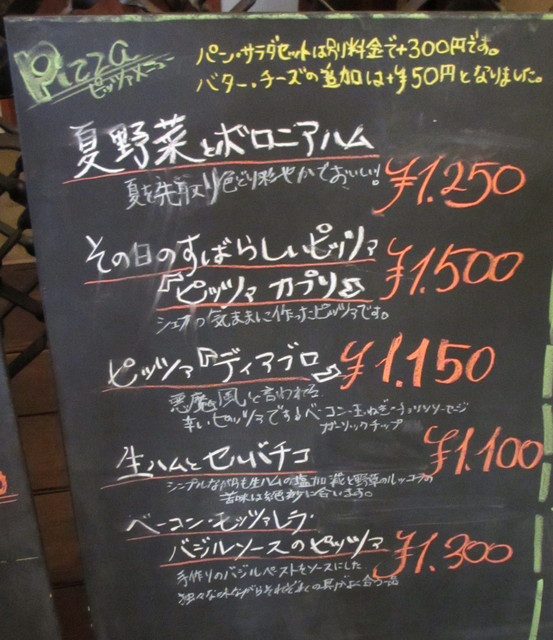 Pizza
ピッツァメニュー
パン・サラダセットは別料金で+300円です。
バター・チーズの追加は+¥50円となりました。
夏野菜とボロニアハム
夏を先取り色どり彩やかでおいしい!
¥1.250
その日のすばらしいピッツァ
『ピッツァ カプリ』
¥1.500
シェフの気ままに作ったピッツァです。
ピッツァ『ディアブロ』
¥1.150
悪魔風と言われる
辛いピッツァです ベーコン・玉ねぎ・チョリソソーセージ
ガーリックチップ
生ハムとセルバチコ
¥1.100
シンプルながらも生ハムの塩加減と野草のルッコラの
苦味は絶妙に合います。
ベーコン・モッツァレラ・
バジルソースのピッツァ
¥1.300
手作りのバジルペーストをソースにした